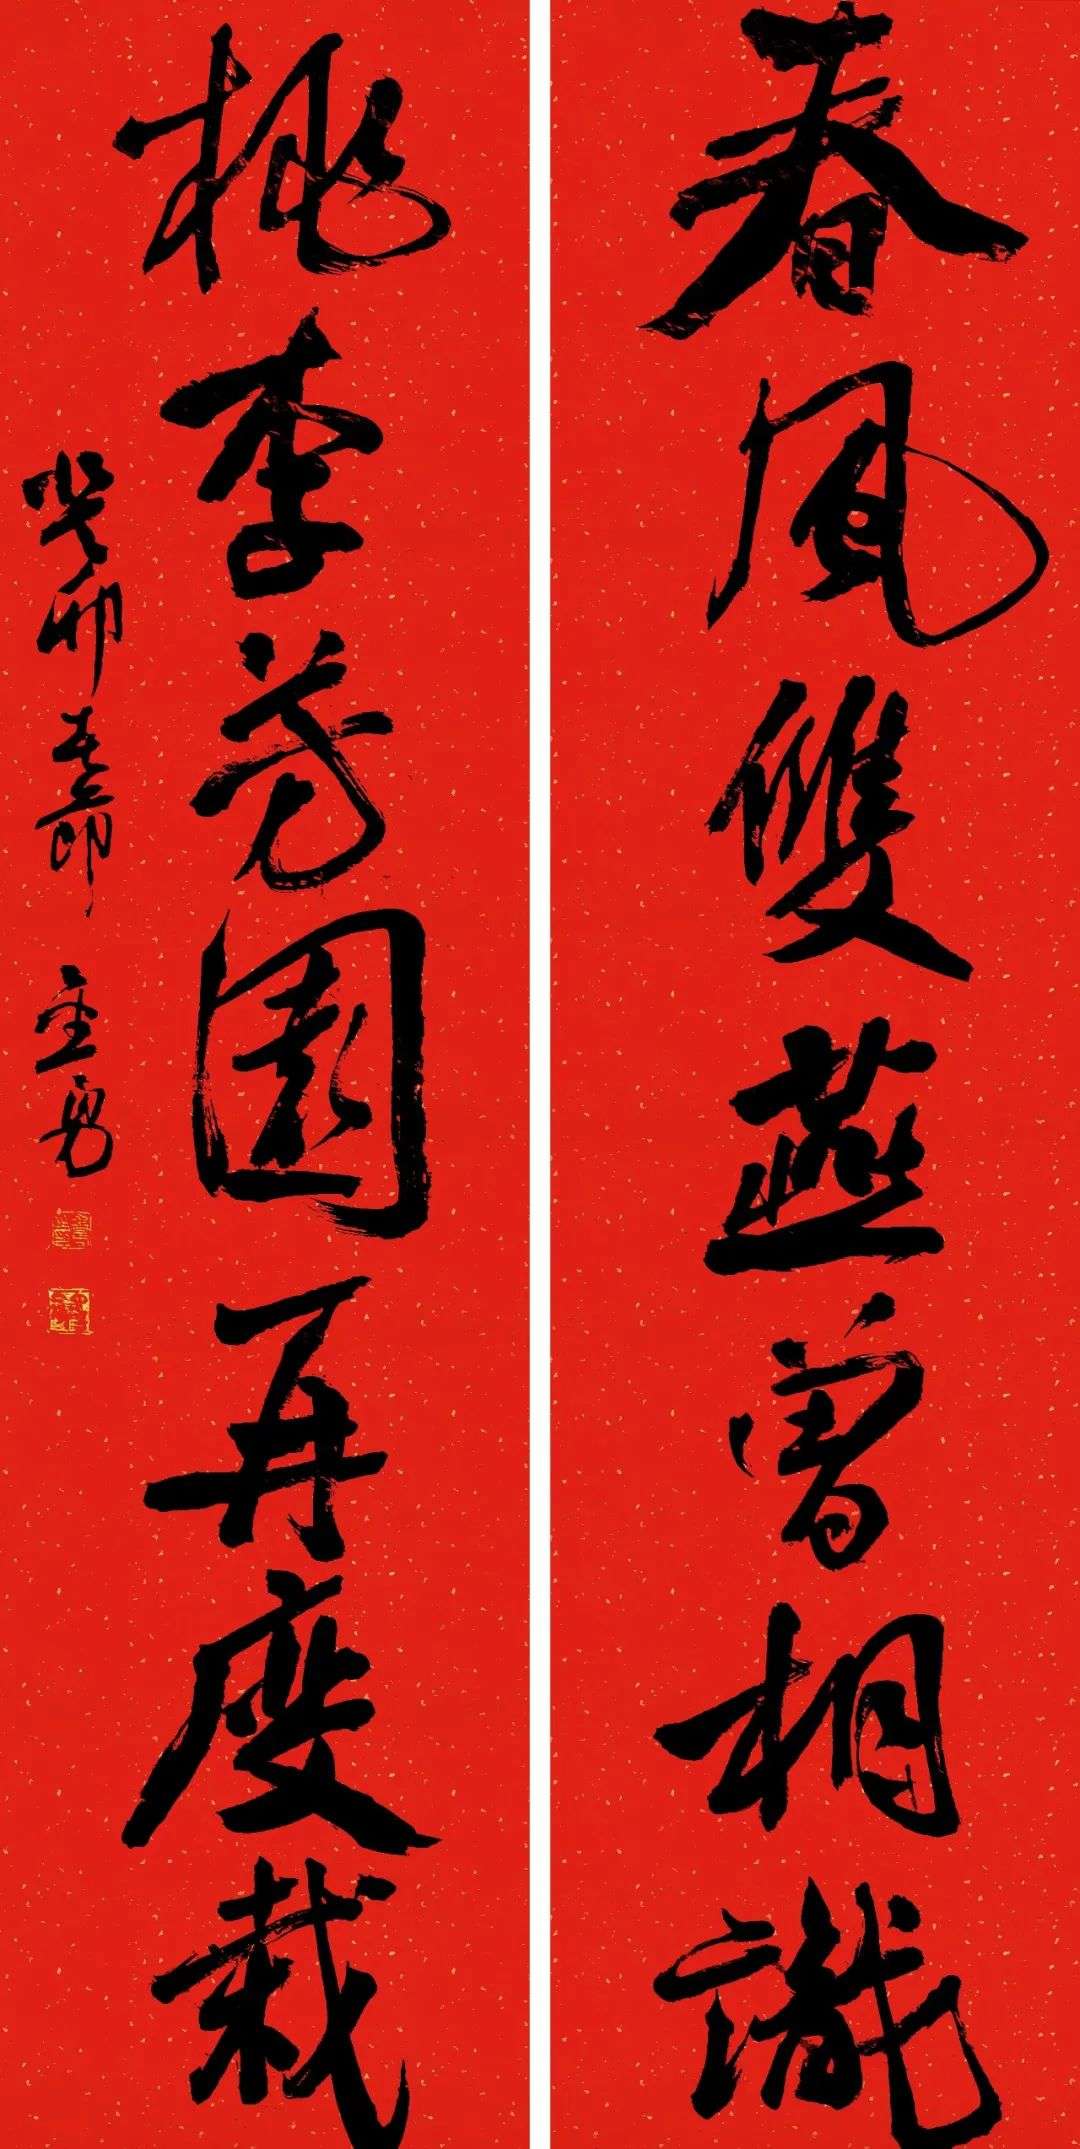 春風雙燕曾相識
桃李芳園再度栽
癸卯春節 金勇